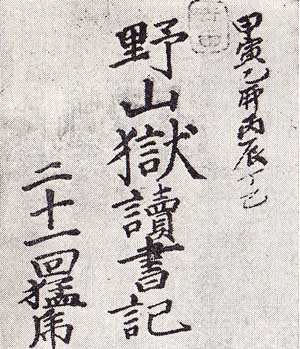 甲寅乙卯丙辰丁巳
野山獄讀書記
二十一回猛士